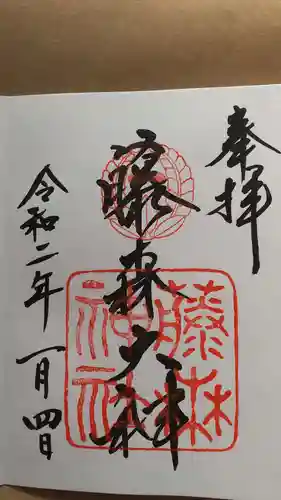 奉拝
藤森大神
令和二年一月四日
藤森
神社